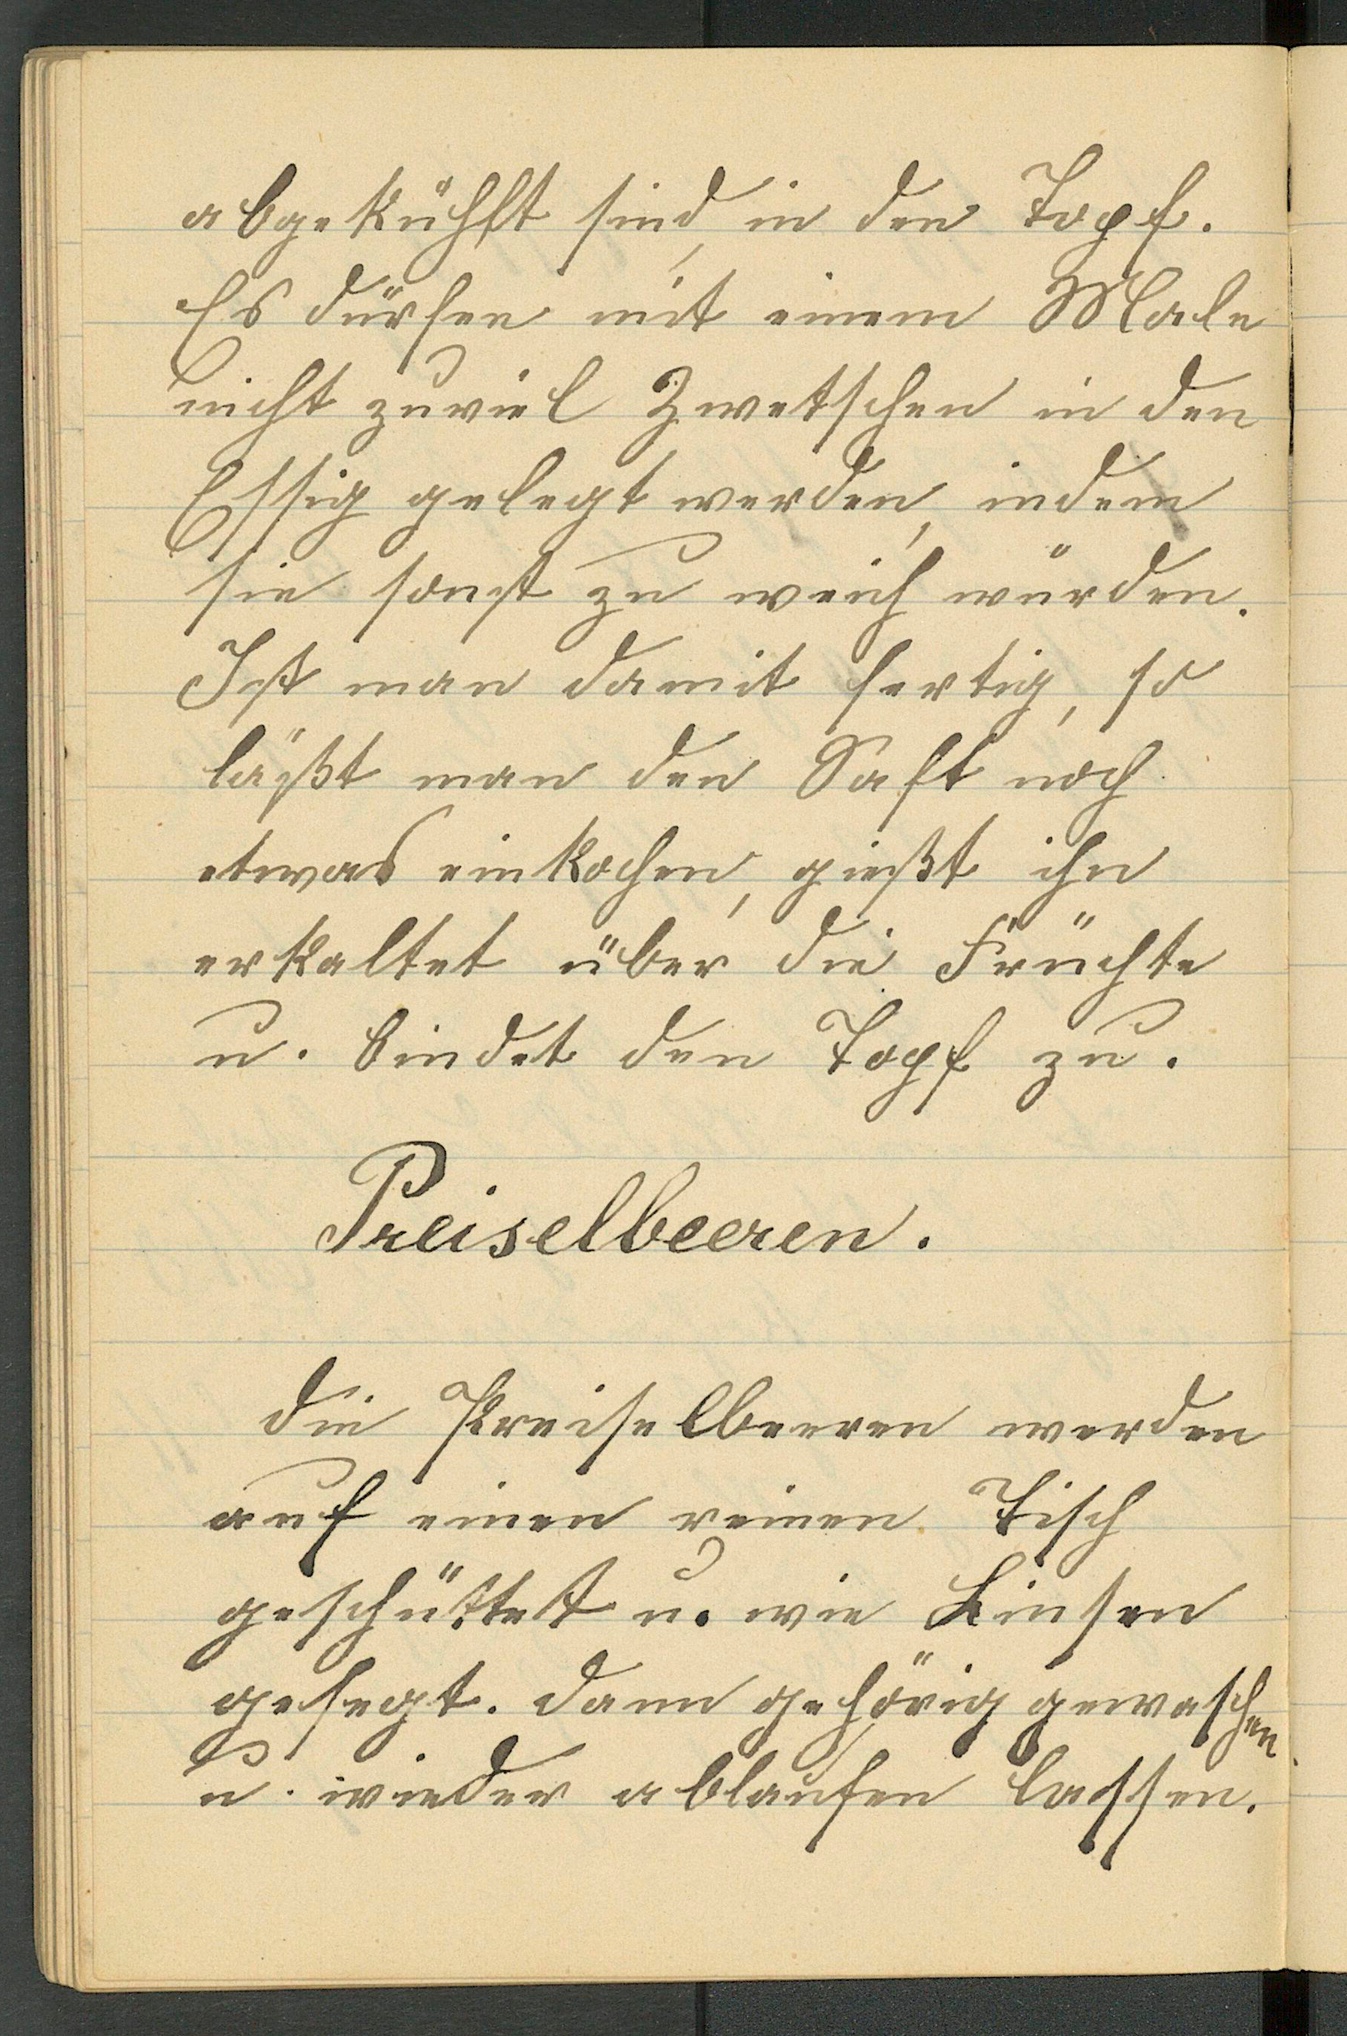 abgekühlt sind, in den Topf.
Es dürfen mit einem Male
nicht zuviel Zwetschen in den
Essig gelegt werden, indem
sie sonst zu weich würden.
Ist man damit fertig, so
läßt man den Saft noch
etwas einkochen, gießt ihn
erkaltet über die Früchte
u. bindet den Topf zu.
Preiselbeeren.
Die Preiselbeeren werden
auf einen reinen Tisch
geschüttet u. wie Linsen
gefegt. Dann gehörig gewaschen
u. wieder ablaufen lassen.